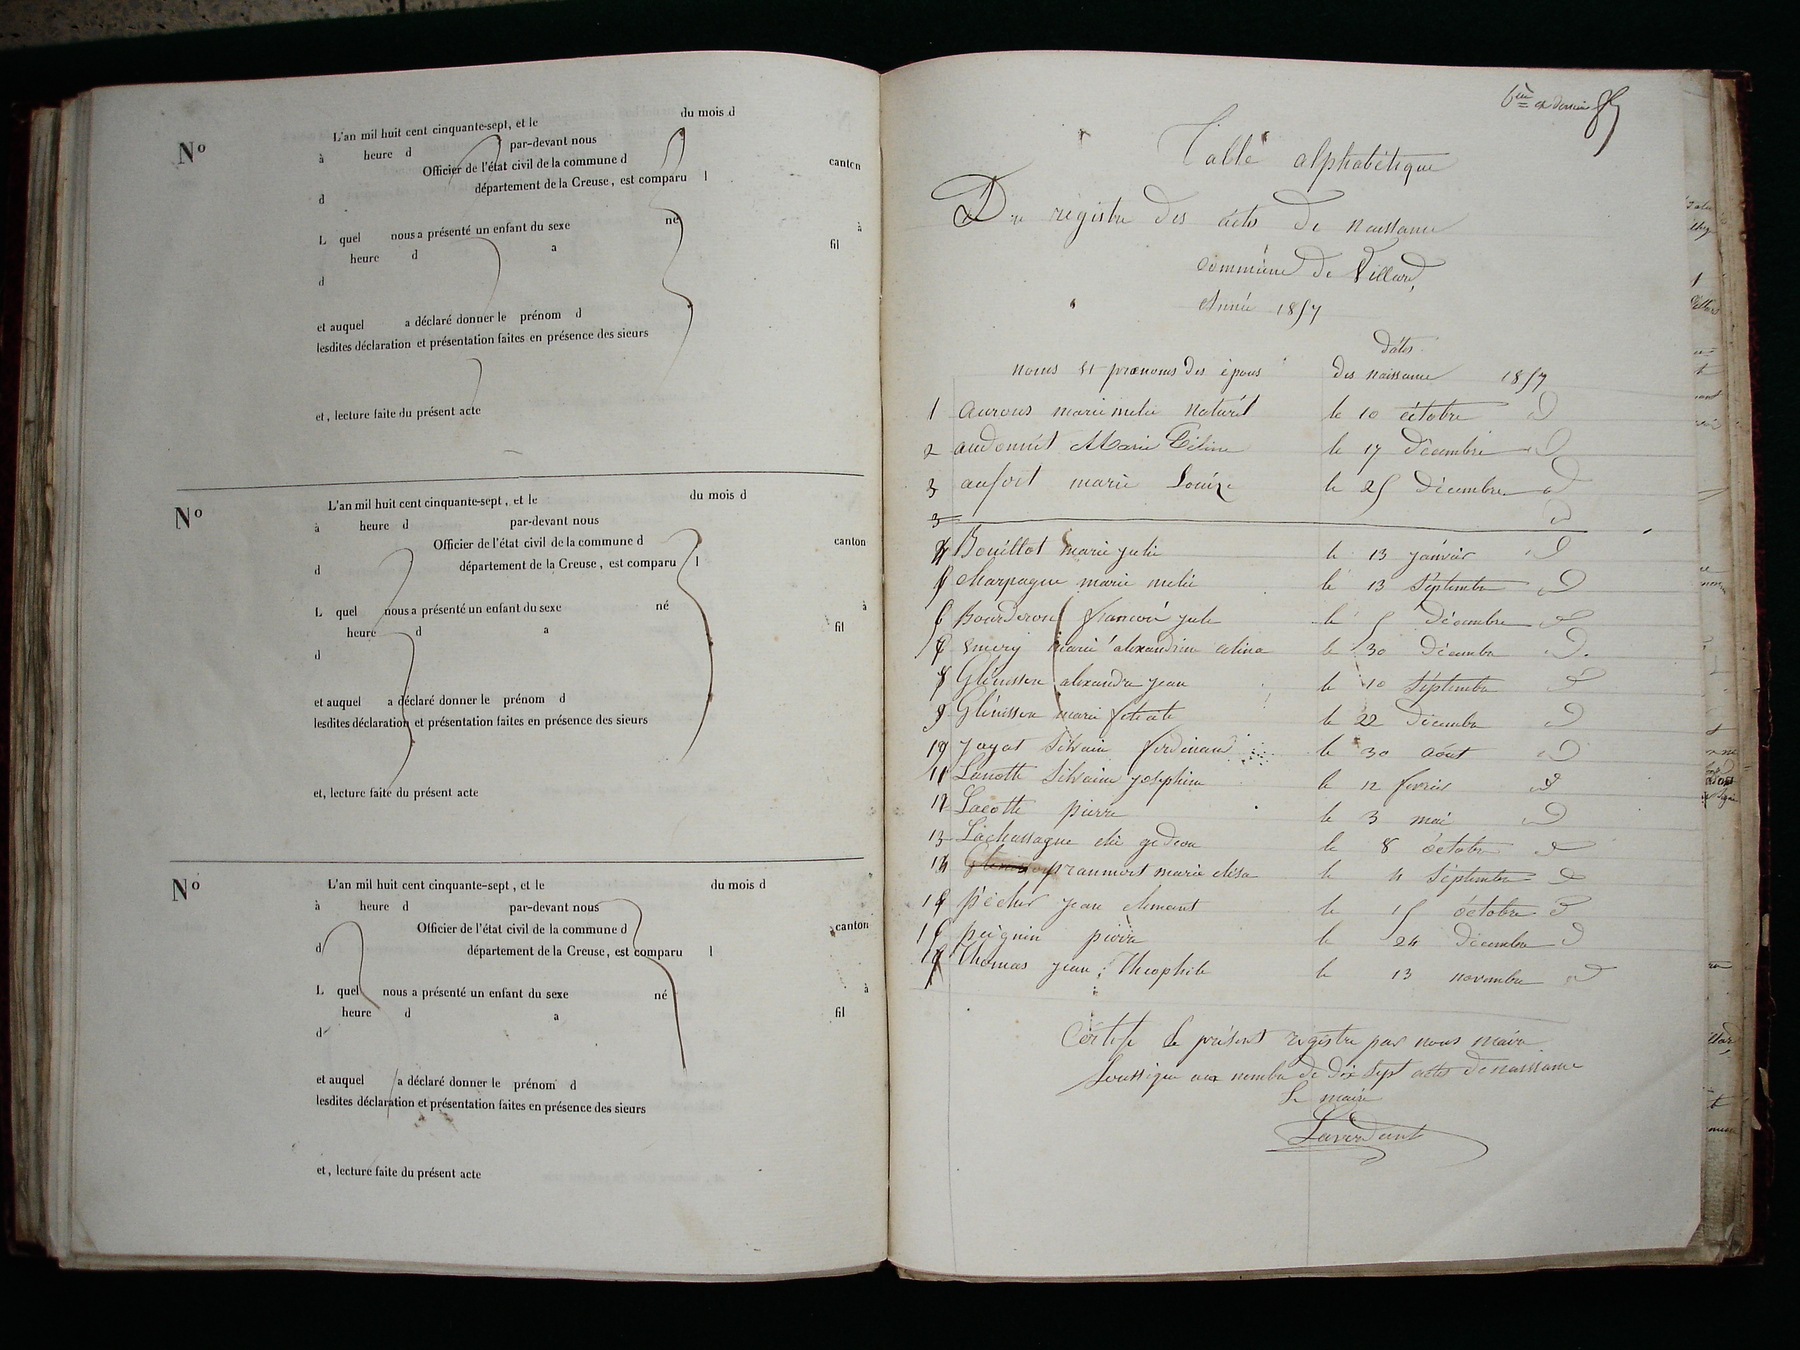 Nº
L'an mil huit cent cinquante-sept, et le du mois d
à heure d par-devant nous
Officier de l'état civil de la commune d canton
d département de la Creuse, est comparu l
L quel nous a présenté un enfant du sexe né à
heure d a fil
d
et auquel a déclaré donner le prénom d
lesdites déclaration et présentation faites en présence des sieurs
et, lecture faite du présent acte
Nº
L'an mil huit cent cinquante-sept, et le du mois d
à heure d par-devant nous
Officier de l'état civil de la commune d canton
d département de la Creuse, est comparu l
L quel nous a présenté un enfant du sexe né à
heure d a fil
d
et auquel a déclaré donner le prénom d
lesdites déclaration et présentation faites en présence des sieurs
et, lecture faite du présent acte
Nº
L'an mil huit cent cinquante-sept, et le du mois d
à heure d par-devant nous
Officier de l'état civil de la commune d canton
d département de la Creuse, est comparu l
L quel nous a présenté un enfant du sexe né à
heure d a fil
d
et auquel a déclaré donner le prénom d
lesdites déclaration et présentation faites en présence des sieurs
et, lecture faite du présent acte
6ème et dernier
Table alphabétique
Du registre des actes de naissance
commune de Villard,
Année 1857
dates
noms et prenoms des épous des naissance 1857
1 aurous marie melie naturel le 10 octobre d
2 audonnet Marie Céline le 17 décembre d
3 aufort marie Louize le 25 décembre d
3 d
4 Bouillot marie julie le 13 janvier d
5 charpagne marie melie le 13 septembre d
6 Bourderon francoi jule le 5 décembre d
7 Emery marie alexandrine celina le 30 décembre d.
8 Glénisson alexandre jean le 10 septembre d
9 Glénisson marie felicite le 22 décembre d
10 jayat Silvain ferdinand le 30 aout d
11 Lanotte Silvaine josephine le 12 fevrier d
12 Lacotte pierre le 3 mai d
13 Lachassagne elie gedeon le 8 octobre d
14 pranmort marie elisa le 4 septembre d
15 pécher jean clement le 15 octobre d
16 peignin pierre le 24 décembre d
17 Thomas jean Theophile le 13 novembre d
Certifie le présent registre par nous maire
soussigne aux nombre de dix sept actes de naissance
Le maire
Laverdant